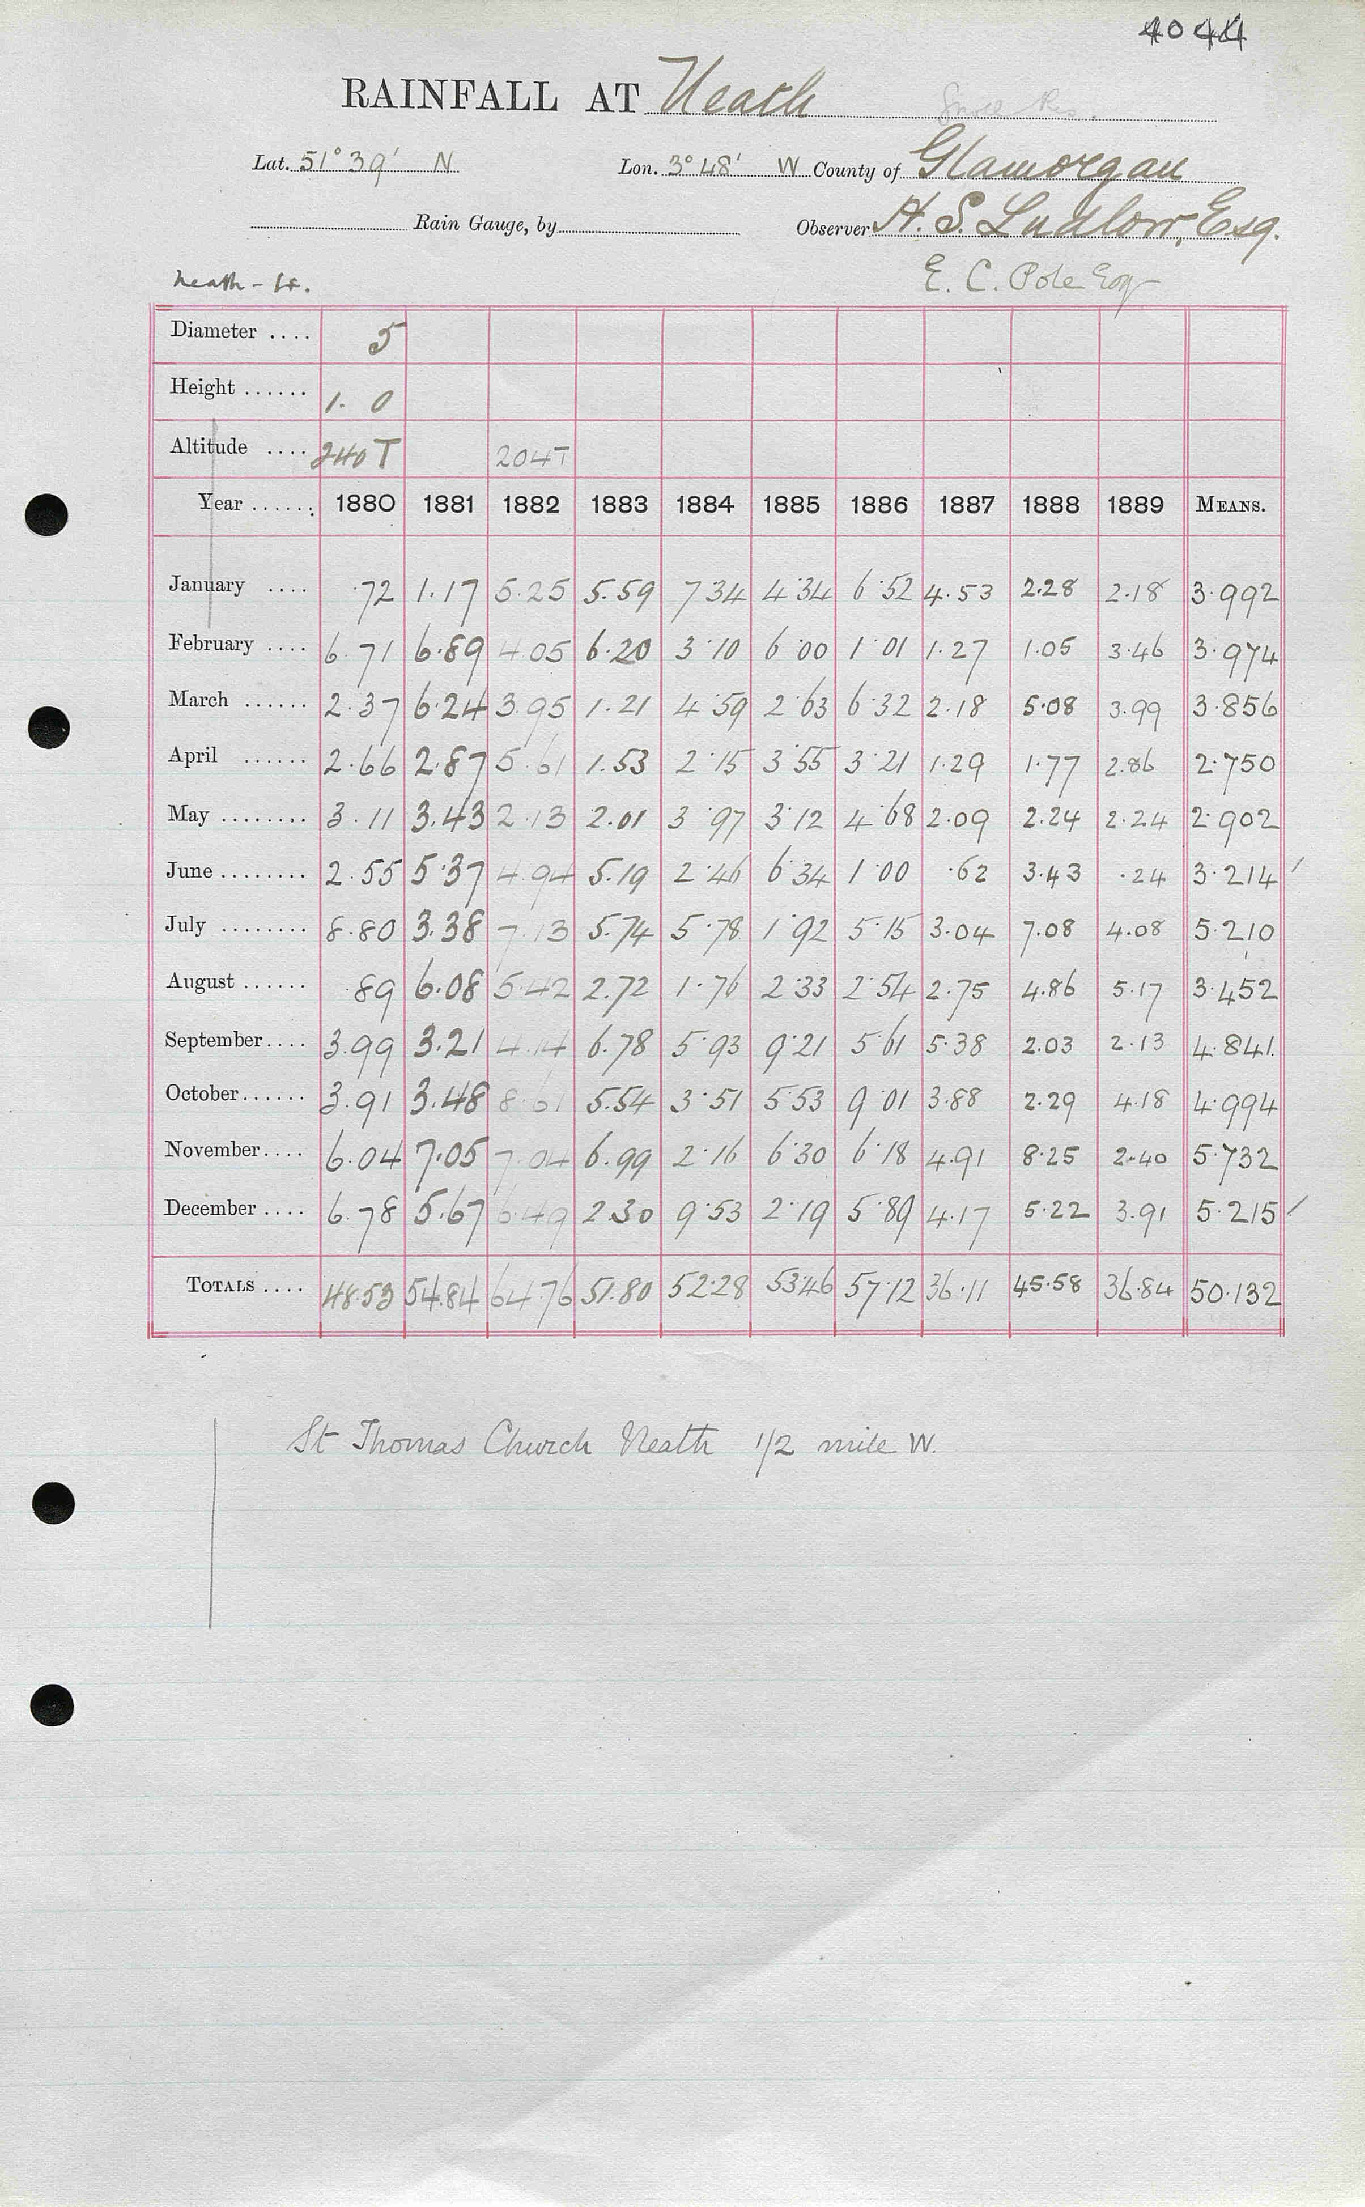 4044
RAINFALL AT Neath Gnoll Res.
Lat. 51° 39' N Lon. 3° 48' W County of Glamorgan
Rain Gauge, by Observer H. S. Ludlow, Esq.
Neath - E. C. Pole Esq
Diameter .... 5
Height ...... 1. 0
Altitude .... 240 T 204T
Year ...... 1880 1881 1882 1883 1884 1885 1886 1887 1888 1889 MEANS.
January .... .72 1.17 5.25 5.59 7.34 4.34 6.52 4.53 2.28 2.18 3.992
February .... 6.71 6.89 4.05 6.20 3.10 6.00 1.01 1.27 1.05 3.46 3.974
March ...... 2.37 6.24 3.95 1.21 4.59 2.63 6.32 2.18 5.08 3.99 3.856
April ...... 2.66 2.87 5.61 1.53 2.15 3.55 3.21 1.29 1.77 2.86 2.750
May ........ 3.11 3.43 2.13 2.01 3.97 3.12 4.68 2.09 2.24 2.24 2.902
June ........ 2.55 5.37 4.94 5.19 2.46 6.34 1.00 .62 3.43 .24 3.214
July ........ 8.80 3.38 7.13 5.74 5.78 1.92 5.15 3.04 7.08 4.08 5.210
August ...... .89 6.08 5.42 2.72 1.76 2.33 2.54 2.75 4.86 5.17 3.452
September.... 3.99 3.21 4.14 6.78 5.93 9.21 5.61 5.38 2.03 2.13 4.841
October...... 3.91 3.48 8.61 5.54 3.51 5.53 9.01 3.88 2.29 4.18 4.994
November.... 6.04 7.05 7.04 6.99 2.16 6.30 6.18 4.91 8.25 2.40 5.732
December .... 6.78 5.67 6.49 2.30 9.53 2.19 5.89 4.17 5.22 3.91 5.215
TOTALS .... 48.53 54.84 64.76 51.80 52.28 53.46 57.12 36.11 45.58 36.84 50.132
St Thomas Church Neath 1/2 mile W.